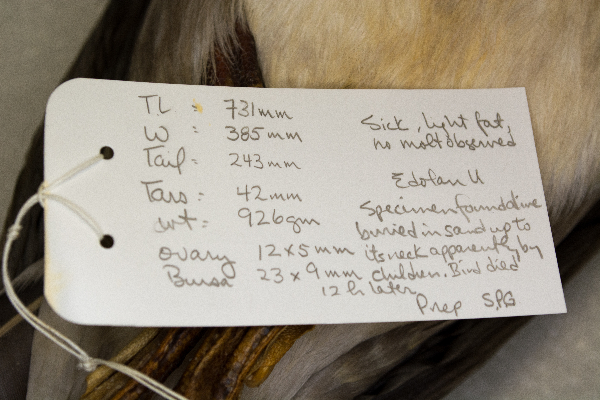 TL : 731mm
W : 385mm
Tail : 243mm
Tars : 42mm
wt : 926gm
ovary 12 x 5 mm
Bursa 23 x 9 mm
Sick, light fat,
no molt observed
Specimen found alive
buried in sand up to
its neck apparently by
children. Bird died
12 h later.
Prep